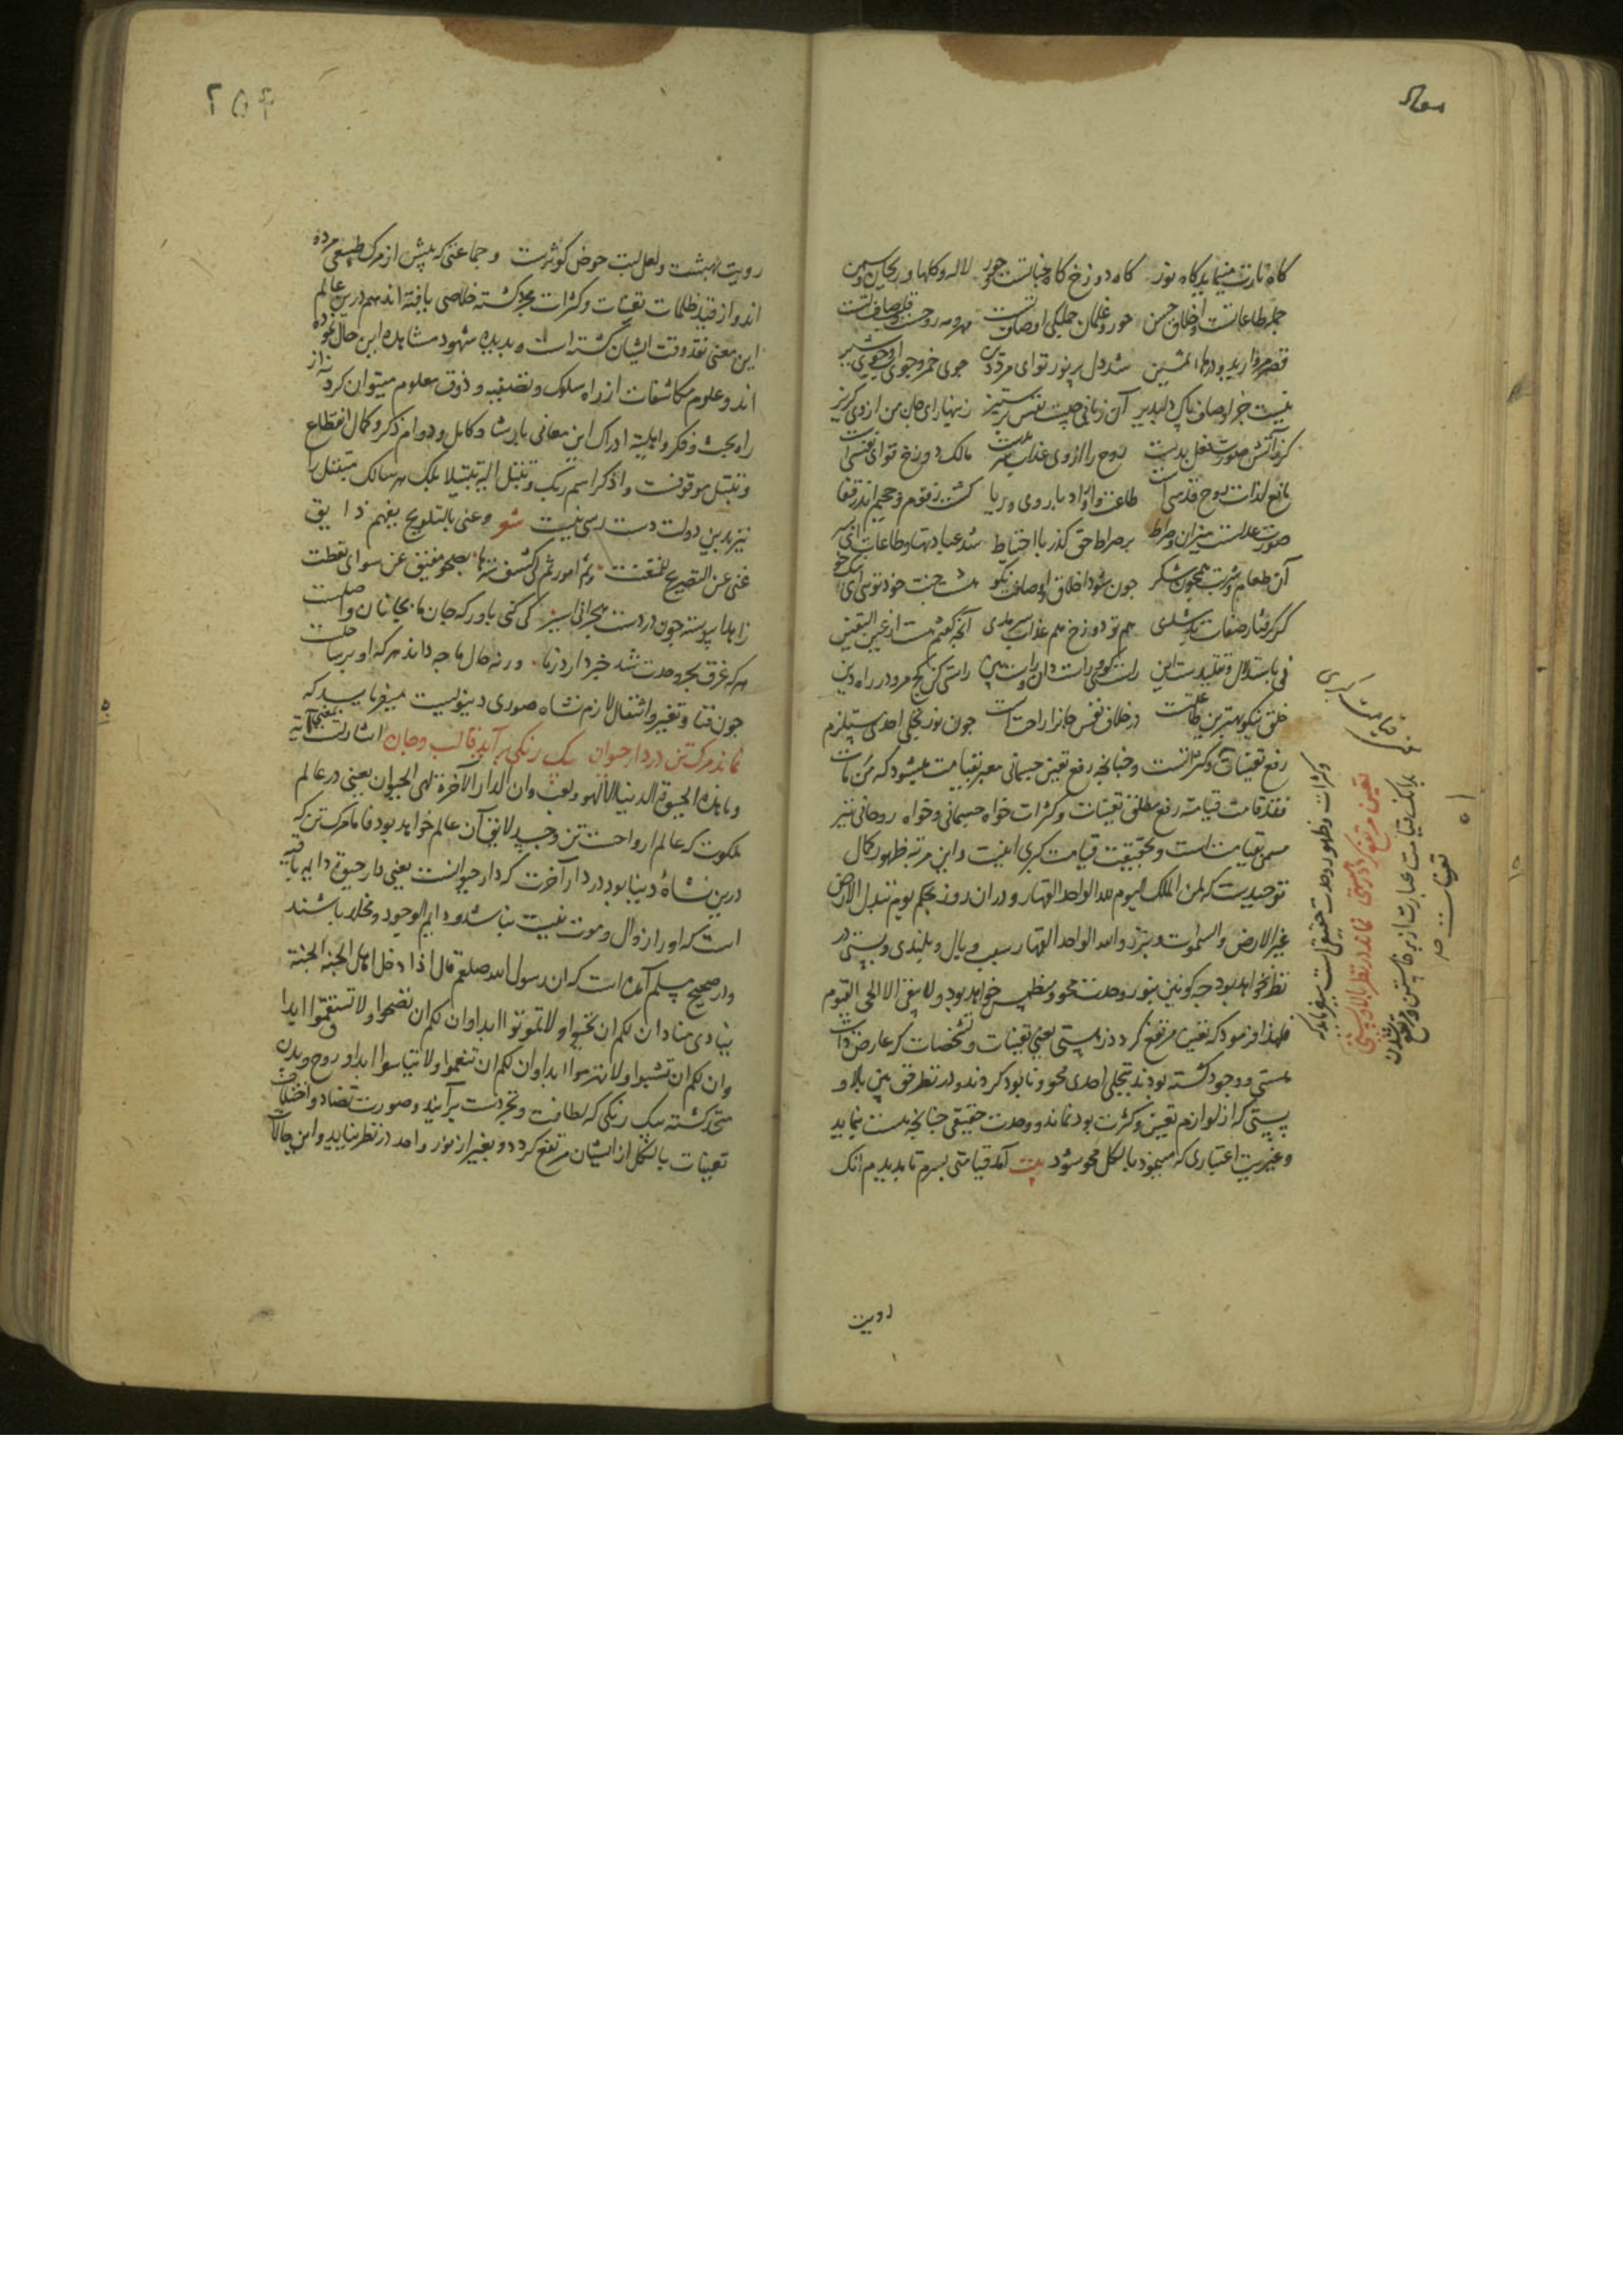 کاه نارت مینماید کاه نور کاه دوزخ کاه جنانست و حور لاله و کلها و ریحان و سمن
جمله طاعاتست و اخلاق حسن حور و غلمان جملکی اوصاف تست
قصر مروارید و درهاء ثمین شد دل پر نور تو ای مرد دین جوی خمر و جوی
نیست جز اوصاف پاک دلپذیر آن زبانی چیست نفس پر ستیز زینهار ای جان من از وی کریز
روح را از وی عذاب مالک دوزخ تو ای
مانع لذات روح قدسی است طاعت و اوراد با روی و ریا کشت زقوم و حمیم اندر قفا
صورت عدلست میزان و صراط بر صراط حق کذر با احتیاط شد عبادتها و طاعات
آن طعام و شربت همچون شکر چون شود اخلاق و اوصافت نکو هشت جنت خود توئی ای نیک خو
کر کرفتار صفات بد شدی هم تو دوزخ هم عذاب سرمدی آنچه کفتم هست از عین الیقین
نی باستدلال و تقلیدست این راست کوی و راست دان و راست بین راستی کن کج مرو در راه دین
خلق نیکو بهترین طاعت است در خلاق نفس جانرا راحت است چون نور تجلی احدی مستلزم
رفع تعینات و کثراتست و چنانچه رفع تعین جسمانی معبر بقیامت میشود که من مات
فقد قامت قیامته رفع مطلق تعینات و کثرات خواه جسمانی و خواه روحانی نیز
مسمی بقیامت است و بحقیقت قیامت کبری اینست و این مرتبه ظهور کمال
توحیدست که لمن الملک الیوم لله الواحد القهار و در آن روز بحکم یوم تبدل الارض
غیر الارض و السموات و برزوا لله الواحد القهار سیب و بال و بلندی و پستی در
نظر نخواهد بود چه کونین بنور وحدت محو و منطمس خواهد بود و لا یبقی الا الحی القیوم
فلهذا فرمود که تعین مرتفع کردد ز هستی یعنی تعینات و تشخصات که عارض ذات
هستی و وجود کشته بودند بتجلی احدی محو و نابود کردند و در نظر فرق بین بالا و
پستی که از لوازم تعین و کثرت بود نماند و وحدت حقیقی چنانچه هست بنماید
و غیریت اعتباری که مینمود بالکل محو شود بیت آمد قیامتی بسرم تا بدیدم آنک
قیامت کبری
بدانک قیامت عبارت از برخاستن و مرتفع شدن
تعینات
و کثرات و ظهور وحدت حقیقی است میفرماید که
تعین مرتفع کردد ز هستی نماند در نظر بالا و پستی
رویت
۲۵۴
رویت بهشت و لعل لبت حوض کوثرست و جماعتی که پیش از مرک طبیعی مرده
اند و از قید ظلمات تعینات و کثرات مجرد کشته خلاصی یافته اند هم درین عالم
این معنی نقد وقت ایشان کشته است و بدیده شهود مشاهده این حال نموده
اند و علوم مکاشفات از راه سلوک و تصفیه و ذوق معلوم میتوان کرد نه از
راه بحث و فکر و ادراک این معانی بارشاد کامل و دوام ذکر و کمال انقطاع
و تبتل موقوفست و اذکر اسم ربک و تبتل الیه تبتیلا بلک هر سالک متبتل را
نیز بدین دولت دست رسی نیست شعر و عنی بالتلویح یفهم ذایق
غنی عن التصریح للمتعنت و ثم امور تم لی کشف سترها بصحو مفیق عن سوای تغطت
زاهدا پیوسته چون در دست هجرانی اسیر کی کنی باور که جان ما بجانان واصلست
هرکه غرق بحر وحدت شد خبر دارد ز ما ورنه حال ما چه داند هرکه او بر ساحلست
چون فنا و تغیر و انتقال لازم نشاه صوری دنیویست میفرماید که
نماند مرک تن در دار حیوان یک رنکی برآید قالب و جان اشارتست
و ما هذه الحیوة الدنیا الا لهو و لعب وان الدار الآخرة لهی الحیوان یعنی در عالم
ملکوت که عالم ارواحست تن و جسد لایق آن عالم خواهد بود فاما مرک تن که
درین نشاه دنیا بود در دار آخرت که دار حیوانست یعنی دار حیوة دایم باقیه
است که او را زوال و موت نیست نباشد و دایم الوجود و مخلد باشند
و در صحیح مسلم آمده است که ان رسول الله صلعم قال اذا دخل اهل الجنة الجنة
ینادی مناد ان لکم ان تحیوا و لا تموتوا ابدا و ان لکم ان تصحوا و لا تسقموا ابدا
و ان لکم ان تشبوا و لا تهرموا ابدا و ان لکم ان تنعموا و لا تیاسوا ابدا و روح و بدن
متحد کشته بیک رنکی که لطافت و تجردست برآیند و صورت تضاد و اختلاف
تعینات بالکل از ایشان مرتفع کردد و بغیر از نور واحد در نظر نیاید و این حالات